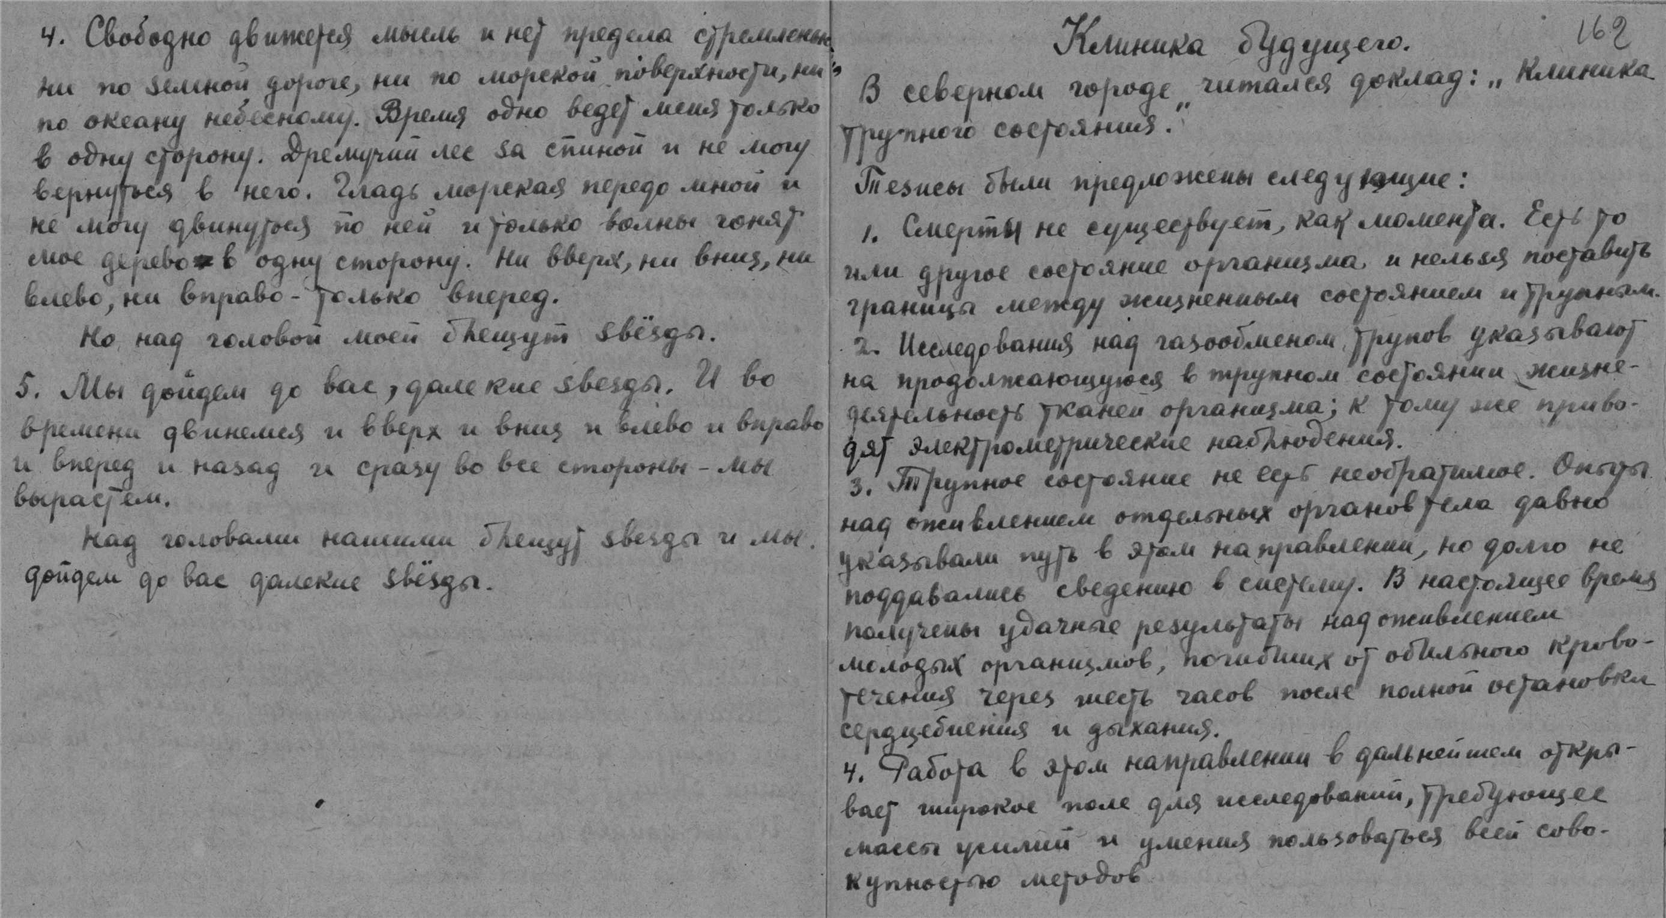 4. Свободно движется мысль и нет предела стремленью
ни по земной дороге, ни по морской поверхности, ни
по океану небесному. Время одно ведет меня только
в одну сторону. Дремучий лес за спиной и не могу
вернуться в него. Гладь морская передо мной и
не могу двинуться по ней и только волны гонят
мое дерево в одну сторону. Ни вверх, ни вниз, ни
влево, ни вправо - только вперед.
Но над головой моей блещут звёзды.
5. Мы дойдем до вас, далекие звезды. И во
времени двинемся и вверх и вниз и влево и вправо
и вперед и назад и сразу во все стороны - мы
вырастем.
Над головами нашими блещут звезды и мы
дойдем до вас далекие звёзды.
162
Клиника будущего.
В северном городе читался доклад: „Клиника
трупного состояния."
Тезисы были предложены следующие:
1. Смерти не существует, как момента. Есть то
или другое состояние организма и нельзя поставить
границы между жизненным состоянием и трупным.
2. Исследования над газообменом трупов указывают
на продолжающуюся в трупном состоянии жизне-
деятельность тканей организма; к тому же приво-
дят электрометрические наблюдения.
3. Трупное состояние не есть необратимое. Опыты
над оживлением отдельных органов тела давно
указывали путь в этом направлении, но долго не
поддавались сведению в систему. В настоящее время
получены удачные результаты над оживлением
молодых организмов, погибших от обильного крово-
течения через шесть часов после полной остановки
сердцебиения и дыхания.
4. Работа в этом направлении в дальнейшем откры-
вает широкое поле для исследований, требующее
массы усилий и умения пользоваться всей сово-
купностью методов